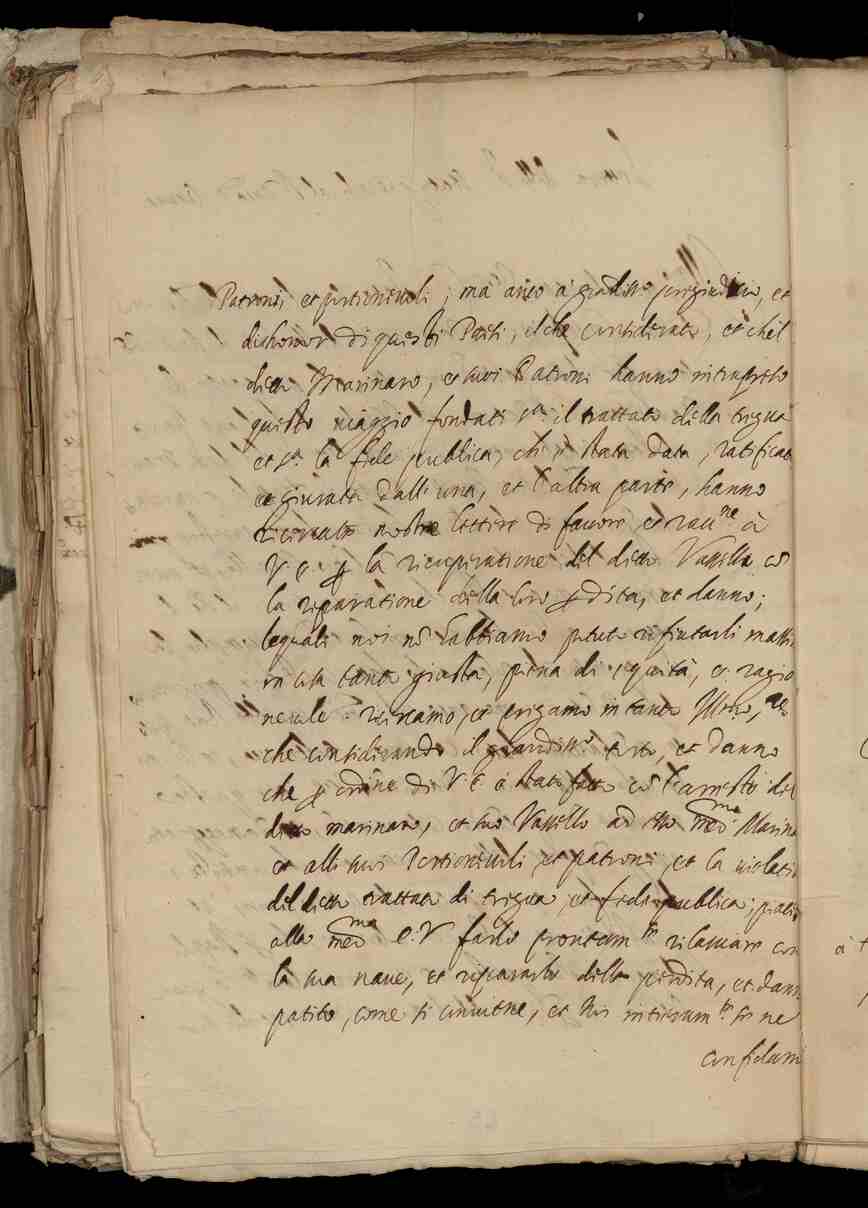 Patroni, et portionevoli, ma anco à grandiss.o pregiuditio, et
dishonor di questi Paesi, il che considerato, et ch'el
detto Marinaro, et suoi Patroni hanno intrapreso
questo viaggio fondati s.a il trattato della tregua
et s.a la fede publica, ch'è stata data, ratificata
et giurata dall'una, et l'altra parte, hanno
ricercato nostre lettere di favore et racc.ne à
V. E. ꝑ la ricuperatione del detto Vassello cõ
la riparatione della loro ꝑdita, et danno;
le quali noi nõ habbiamo potuto rifiutarli massi
in cosa tanto giusta, piena di equità, et ragio
nevole. et pregamo in tanto
che considerando il grandiss.o torto, et danno
che ꝑ ordine di V. E. è stato fatto cõ l'arresto del
detto marinaro, et suo Vassello ad esso med.mo Marina
et alli suoi Portionevoli, et patroni, et la violatio
del detto trattato di tregua, et fede publica; piaccia
alla med.ma E. V. farlo prontam.te rilasciare con
la sua nave, et ripararlo della perdita, et dann
patito, come si conviene, et noi interam.te ce ne
confidam